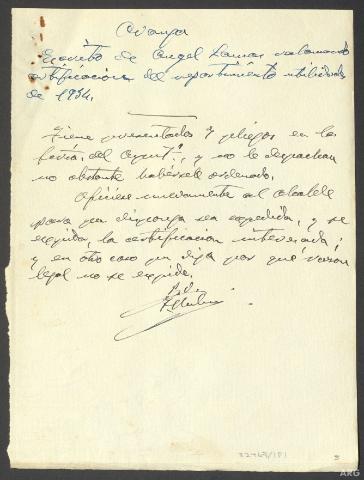 Oyanza
Escrito de Angel Lamas reclamando
certificacion del repartimiento utilidades
de 1934.
Tiene presentados 7 pliegos en la
Secría. del Ayunt.º, y no le despachan
no obstante habérsele ordenado.
Ofíciese nuevamente al alcalde
para que disponga sea expedida, y se
expida, la certificacion interesada;
y en otro caso que diga por qué razon
legal no se expide.
22469/181
3
ARG